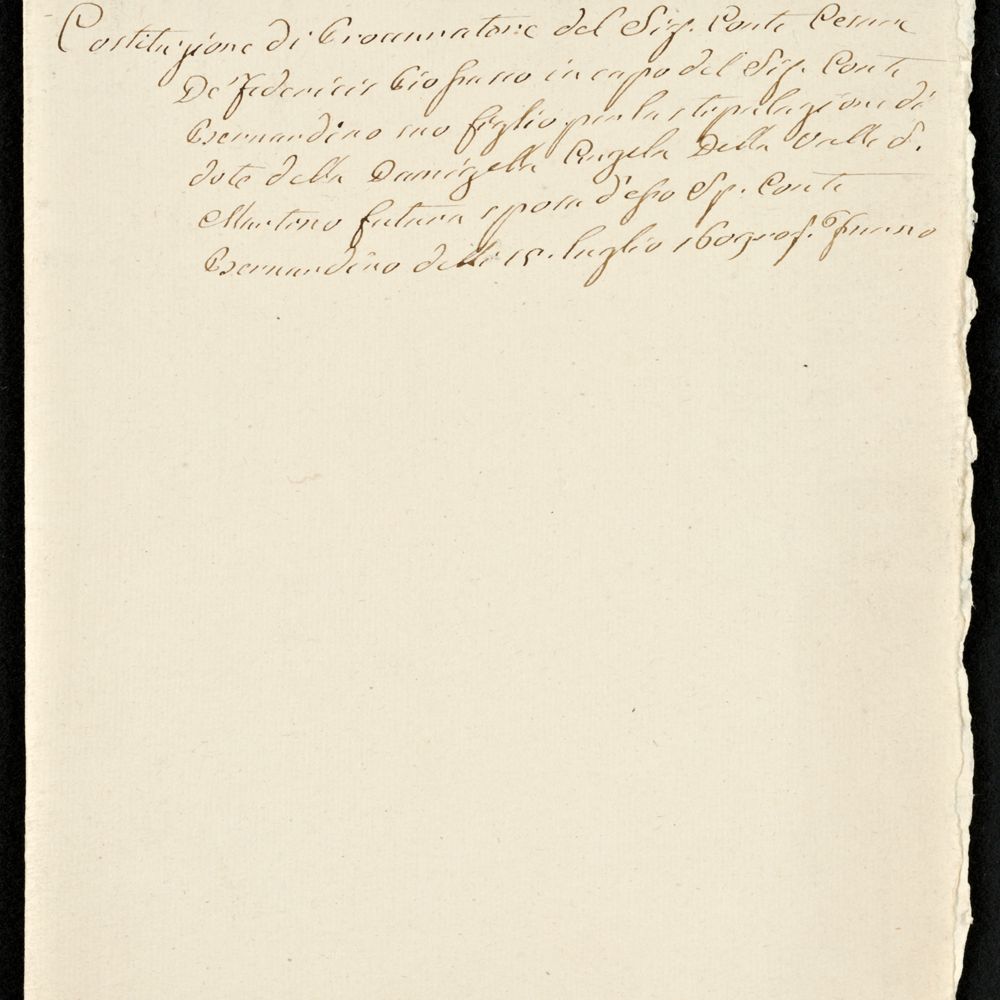 Costituzione di Procuratore del Sig. Conte Cesare
De' Federicis Gio in capo del Sig. Conte
Bernardino suo figlio per la stipulazione di
dote della Damigella Angela Della Valle S.
Martino futura sposa d'esso Sig. Conte
Bernardino delli 15. luglio